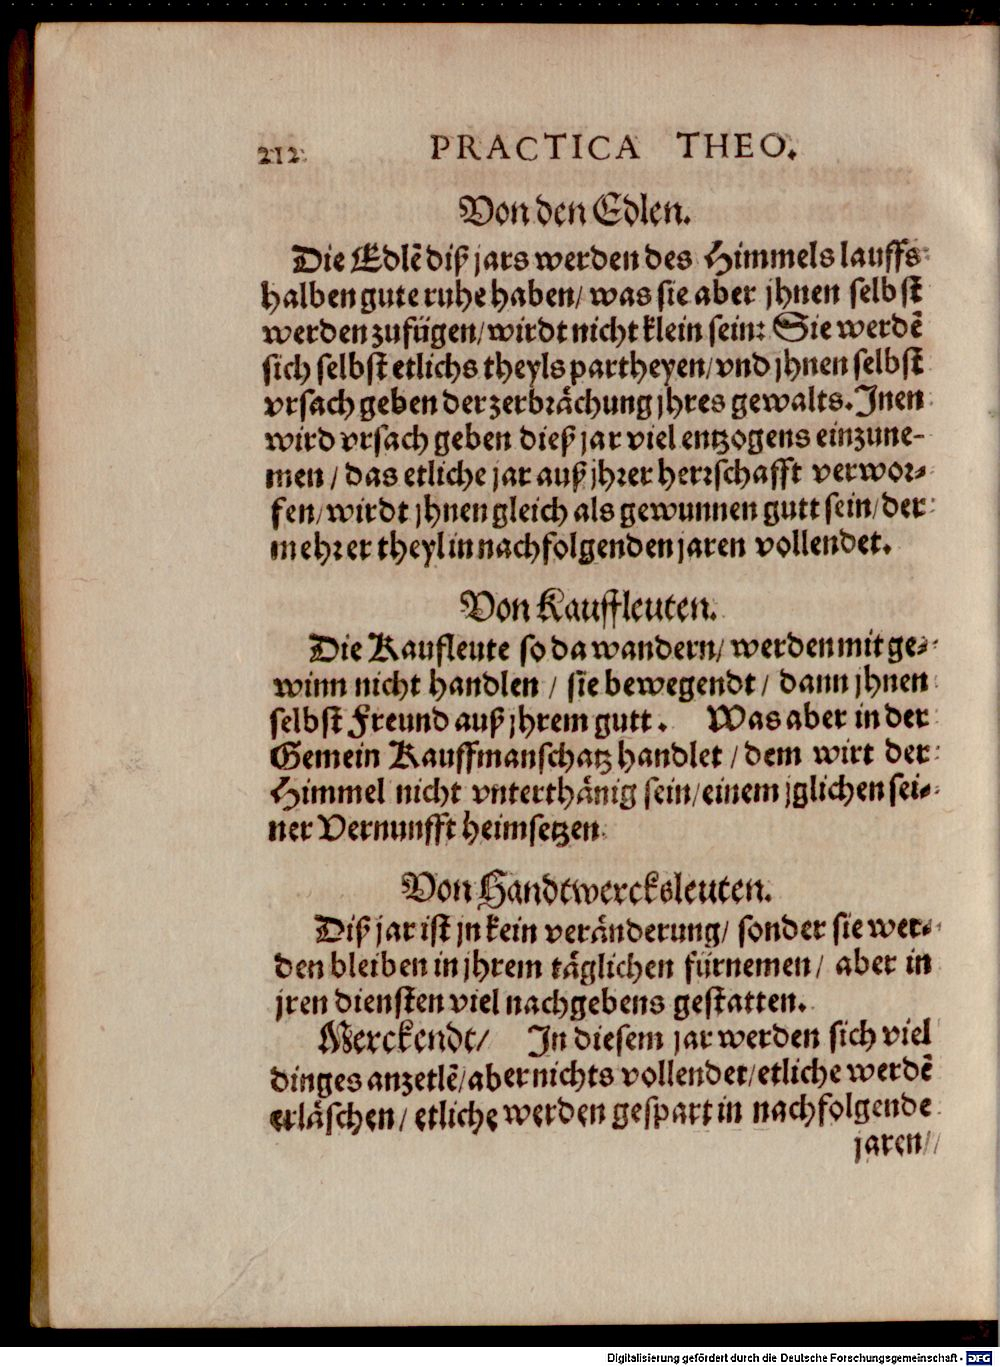 212. PRACTICA THEO.
Von den Edlen.
Die Edlẽ diß jars werden des Himmels lauffs
halben gute ruhe haben/ was sie aber jhnen selbst
werden zufügen/ wirdt nicht klein sein: Sie werdẽ
sich selbst etlichs theyls partheyen/ vnd jhnen selbst
vrsach geben der zerbrächung jhres gewalts. Inen
wird vrsach geben dieß jar viel entzogens einzune-
men / das etliche jar auß jhrer herrschafft verwor-
fen/ wirdt jhnen gleich als gewunnen gutt sein/ der
mehrer theyl in nachfolgenden jaren vollendet.
Von Kauffleuten.
Die Kaufleute so da wandern/ werden mit ge-
winn nicht handlen / sie bewegendt / dann jhnen
selbst Freund auß jhrem gutt. Was aber in der
Gemein Kauffmanschatz handlet / dem wirt der
Himmel nicht vnterthänig sein/ einem jglichen sei-
ner Vernunfft heimsetzen.
Von Handtwercksleuten.
Diß jar ist jn kein veränderung/ sonder sie wer-
den bleiben in jhrem täglichen fürnemen/ aber in
jren diensten viel nachgebens gestatten.
Merckendt/ In diesem jar werden sich viel
dinges anzetlẽ/ aber nichts vollendet/ etliche werdẽ
erläschen/ etliche werden gespart in nachfolgende
jaren/
Digitalisierung gefördert durch die Deutsche Forschungsgemeinschaft - DFG